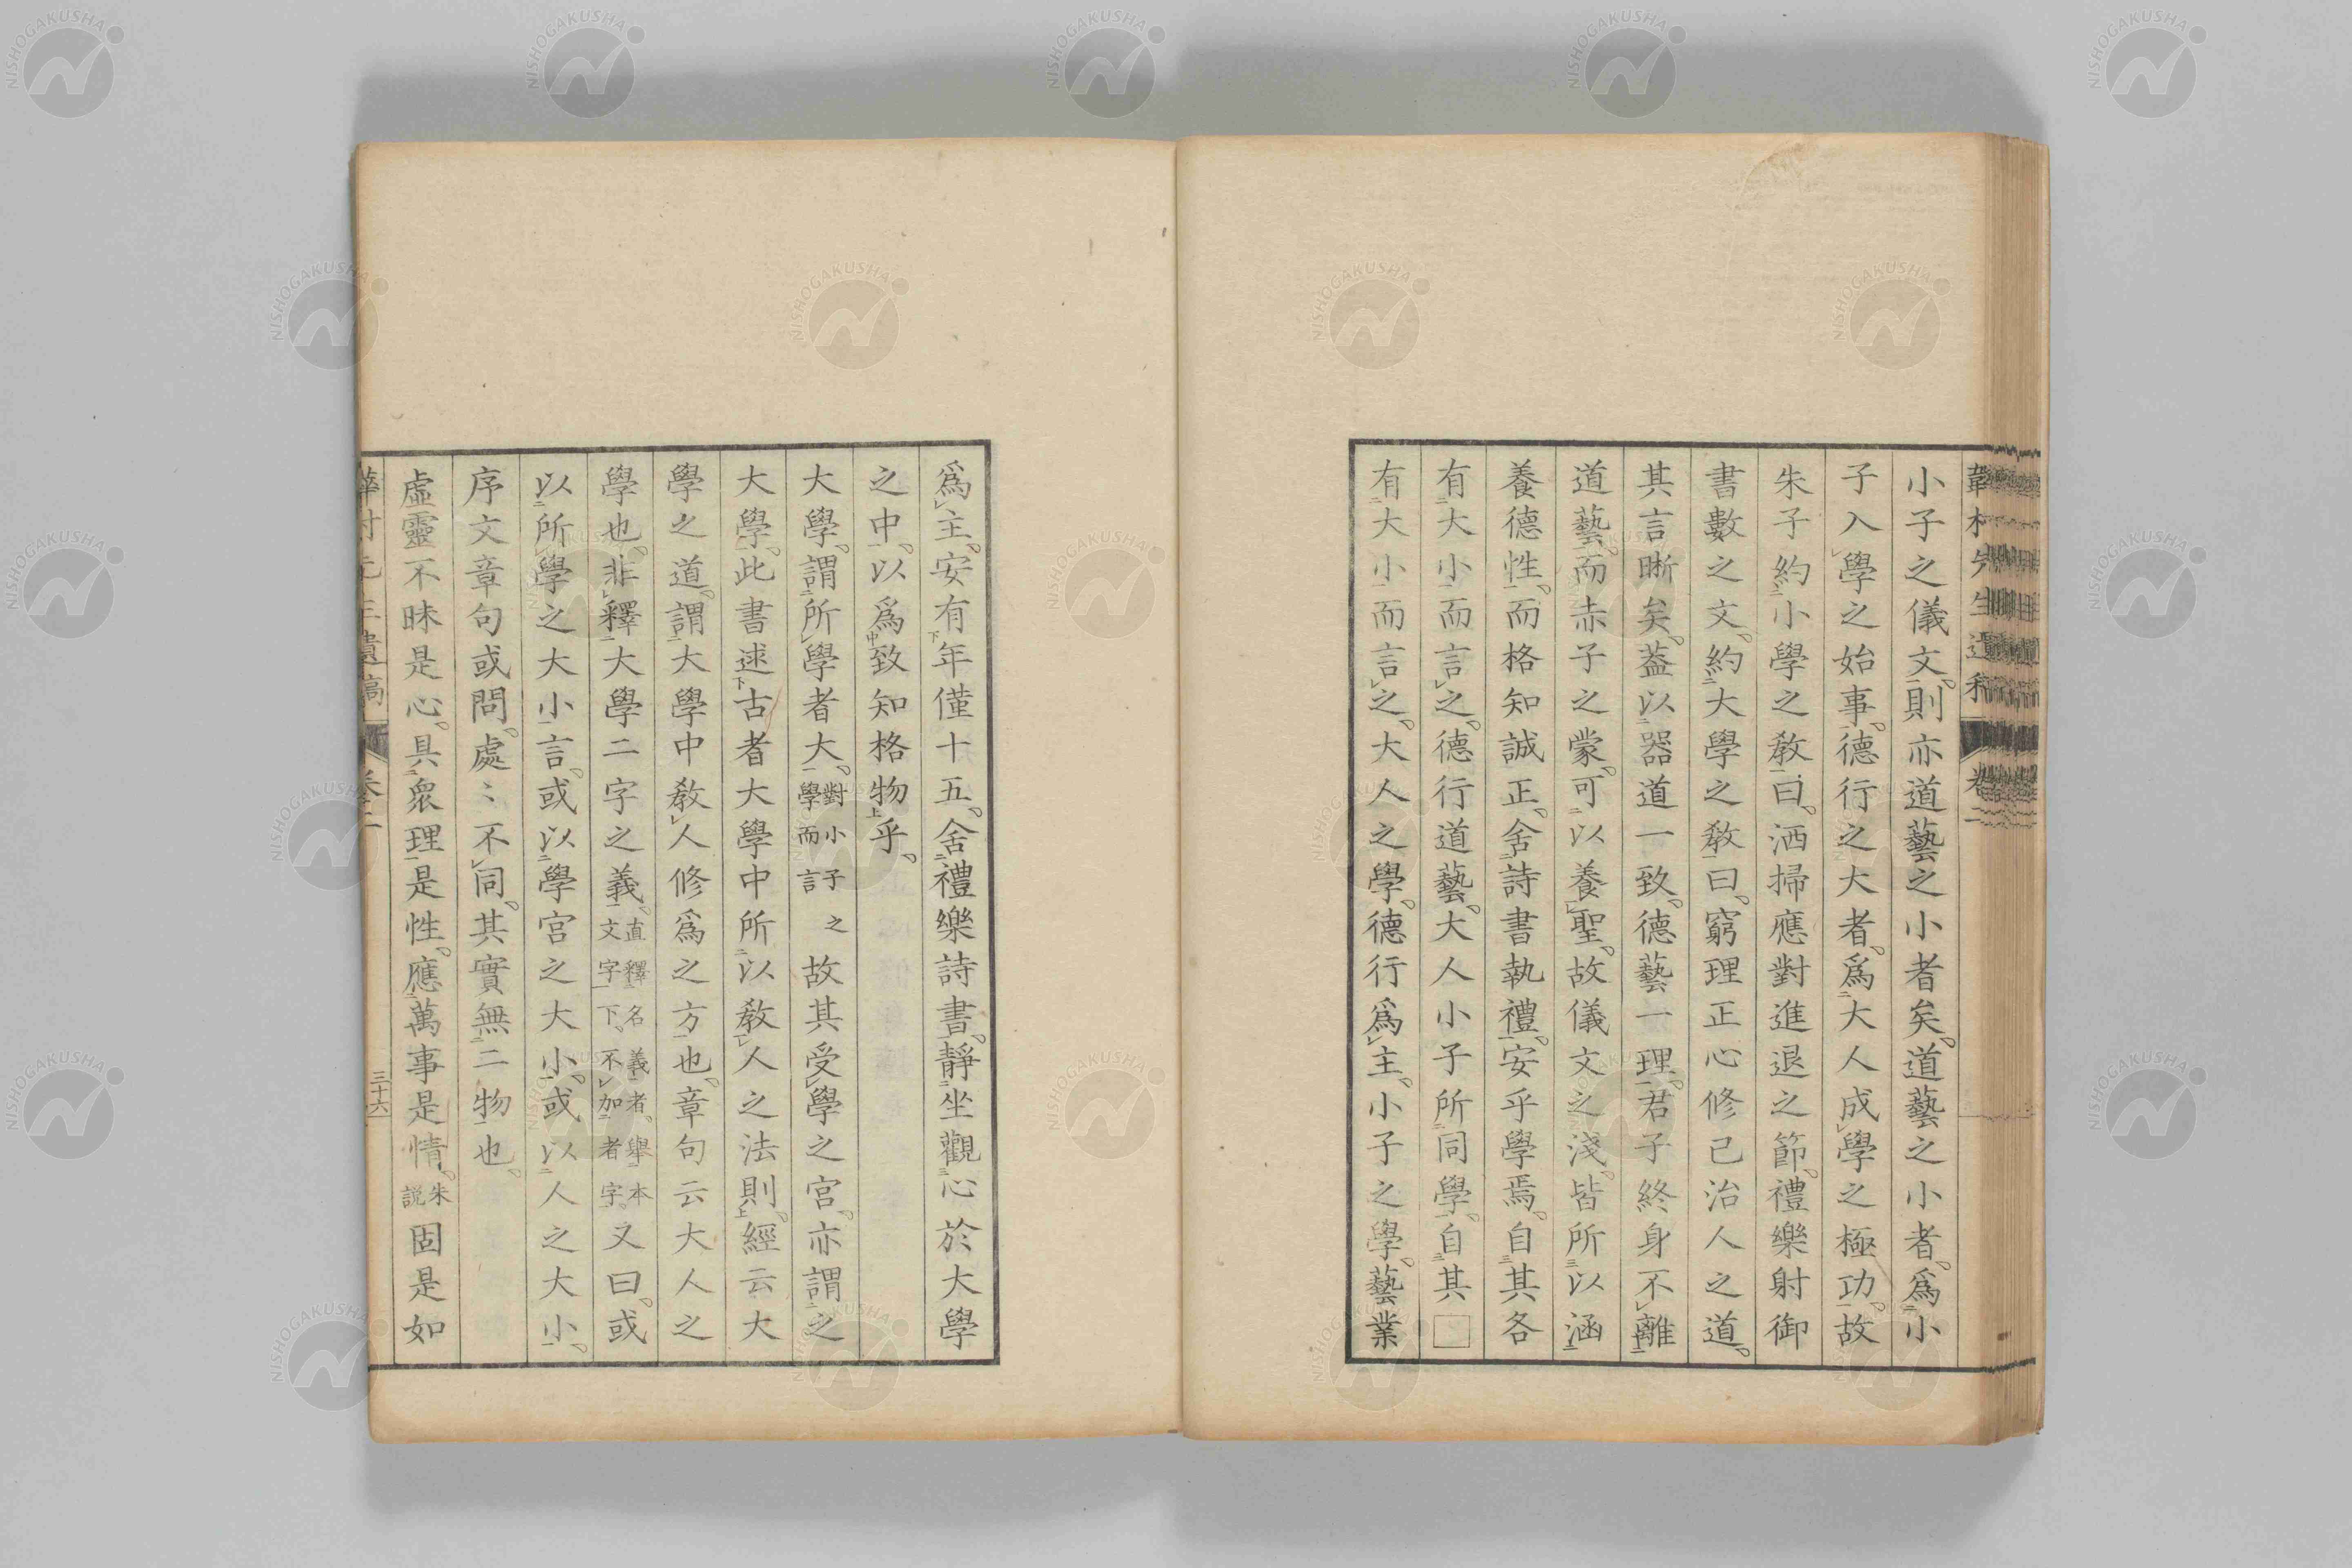 小子之儀文則亦道藝之小者矣道藝之小者爲小
子入學之始事德行之大者爲大人成學之極功故
朱子約小學之教曰洒掃應對進退之節禮樂射御
書數之文約大學之教曰窮理正心修己治人之道
其言晰矣蓋以器道一致德藝一理君子終身不離
道藝而赤子之蒙可以養聖故儀文之淺皆所以涵
養德性而格知誠正舍詩書執禮安乎學焉自其各
有大小而言之德行道藝大人小子所同學自其□
有大小而言之大人之學德行爲主小子之學藝業
爲主安有年僅十五舍禮樂詩書靜坐觀心於大學
之中以爲致知格物乎
大學謂所學者大對小子之學而言故其受學之宮亦謂之
大學此書述古者大學中所以教人之法則經云大
學之道謂大學中教人修爲之方也章句云大人之
學也非釋大學二字之義直釋名義者舉本文字下不加者字又曰或
以所學之大小言或以學宮之大小或以人之大小
序文章句或問處〻不同其實無二物也
虛靈不昧是心具衆理是性應萬事是情朱說固是如
卷二
三十六
NISHOGAKUSHA